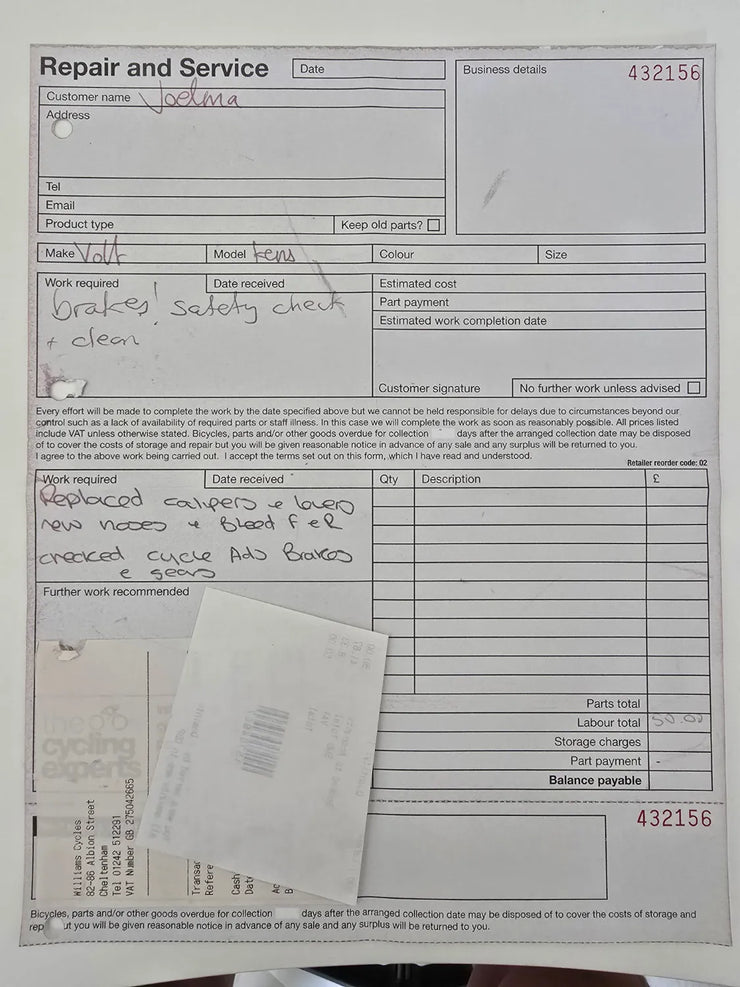 Repair and Service
Date
Business details
432156
Customer name Joelma
Address
Tel
Email
Product type
Keep old parts?
Make Volt
Model kens
Colour
Size
Work required
Date received
brakes! safety check
+ clean
Estimated cost
Part payment
Estimated work completion date
Customer signature
No further work unless advised
Every effort will be made to complete the work by the date specified above but we cannot be held responsible for delays due to circumstances beyond our
control such as a lack of availability of required parts or staff illness. In this case we will complete the work as soon as reasonably possible. All prices listed
include VAT unless otherwise stated. Bicycles, parts and/or other goods overdue for collection days after the arranged collection date may be disposed
of to cover the costs of storage and repair but you will be given reasonable notice in advance of any sale and any surplus will be returned to you.
I agree to the above work being carried out. I accept the terms set out on this form, which I have read and understood.
Retailer reorder code: 02
Work required
Date received
Qty
Description
£
Replaced calipers & levers
new hoses + Bleed F & R
checked cycle Ads Brakes
& gears
Further work recommended
Parts total
Labour total 50.00
Storage charges
Part payment -
Balance payable
the
cycling
experts
Williams Cycles
82-86 Albion Street
Cheltenham
Tel 01242 512291
VAT Number GB 275042665
432156
Bicycles, parts and/or other goods overdue for collection days after the arranged collection date may be disposed of to cover the costs of storage and
rep ut you will be given reasonable notice in advance of any sale and any surplus will be returned to you.